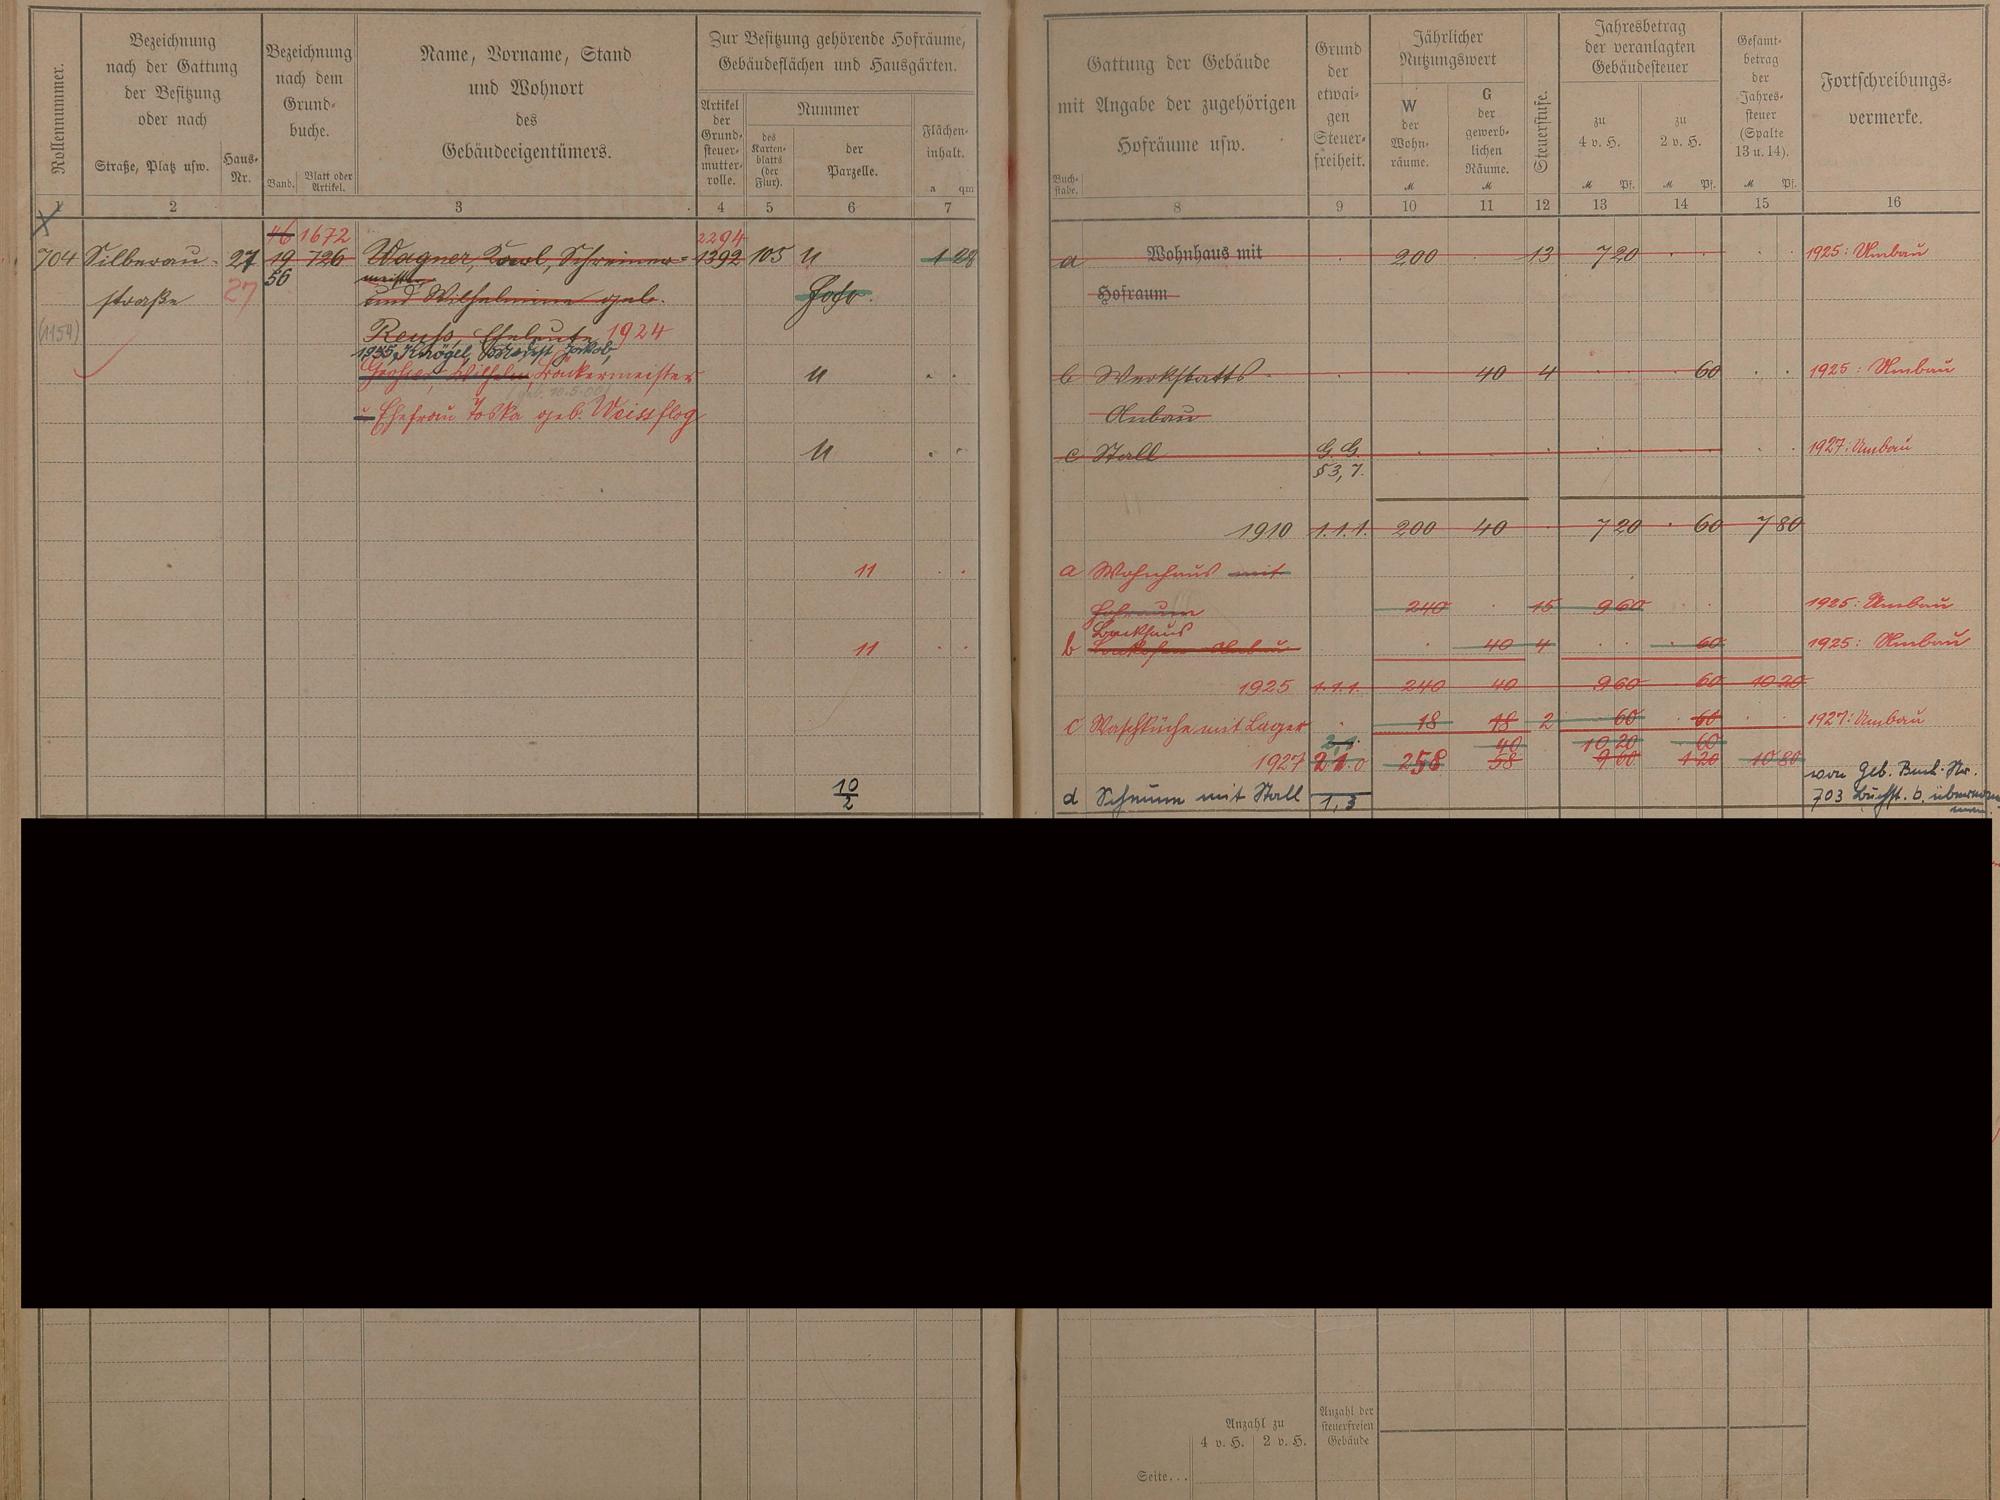 Rollennummer.
Bezeichnung
nach der Gattung
der Besitzung
oder nach
Straße, Platz usw.
Haus-
Nr.
Bezeichnung
nach dem
Grund-
buche.
Band.
Blatt oder
Artikel.
Name, Vorname, Stand
und Wohnort
des
Gebäudeeigentümers.
Zur Besitzung gehörende Hofräume,
Gebäudeflächen und Hausgärten.
Artikel
der
Grund-
steuer-
mutter-
rolle.
Nummer
des
Karten-
blatts
(der
Flur).
der
Parzelle.
Flächen-
inhalt.
a qm
1 2 3 4 5 6 7
46 1672 2294
704 Silberau- 27 19 726 Wagner, Karl, Schreiner- 1392 105 11 1 28
56 meister
straße 27 und Wilhelmine geb. Hofr.
(1154) Reuß, Eheleute 1924
1935, Krögel, Jakob,
Wilhelm, Bäckermeister 11
u. Ehefrau Toska geb. Weissflog
11
11
11
10
2
Gattung der Gebäude
mit Angabe der zugehörigen
Hofräume usw.
Buch-
stabe.
Grund
der
etwai-
gen
Steuer-
freiheit.
Jährlicher
Nutzungswert
W
der
Wohn-
räume.
M
G
der
gewerb-
lichen
Räume.
M
Steuerstufe.
Jahresbetrag
der veranlagten
Gebäudesteuer
zu
4 v. H.
M Pf.
zu
2 v. H.
M Pf.
Gesamt-
betrag
der
Jahres-
steuer
(Spalte
13 u. 14).
M Pf.
Fortschreibungs-
vermerke.
8 9 10 11 12 13 14 15 16
a Wohnhaus mit 200 13 7 20 1925: Umbau
Hofraum
b Werkstatts- 40 4 60 1925: Umbau
Anbau
c Stall G. G. 1927: Umbau
§ 3, 7.
1910 1.1.1. 200 40 7 20 60 7 80
a Wohnhaus mit
Hofraum 240 15 9 60 1925: Umbau
Backhaus
b 40 4 60 1925: Umbau
1925 1.1.1. 240 40 9 60 60 10 20
c Waschküche mit Lager 18 18 2 60 60 1927: Umbau
40 10 20 60
1927 2 1.0 258 58 9 60 1 20 10 80
von Geb. Buch-Nr.
d Scheune mit Stall 1,3 703 Buchst. b. übernom-
men.
Anzahl zu
4 v. H. 2 v. H.
Anzahl der
steuerfreien
Gebäude
Seite...